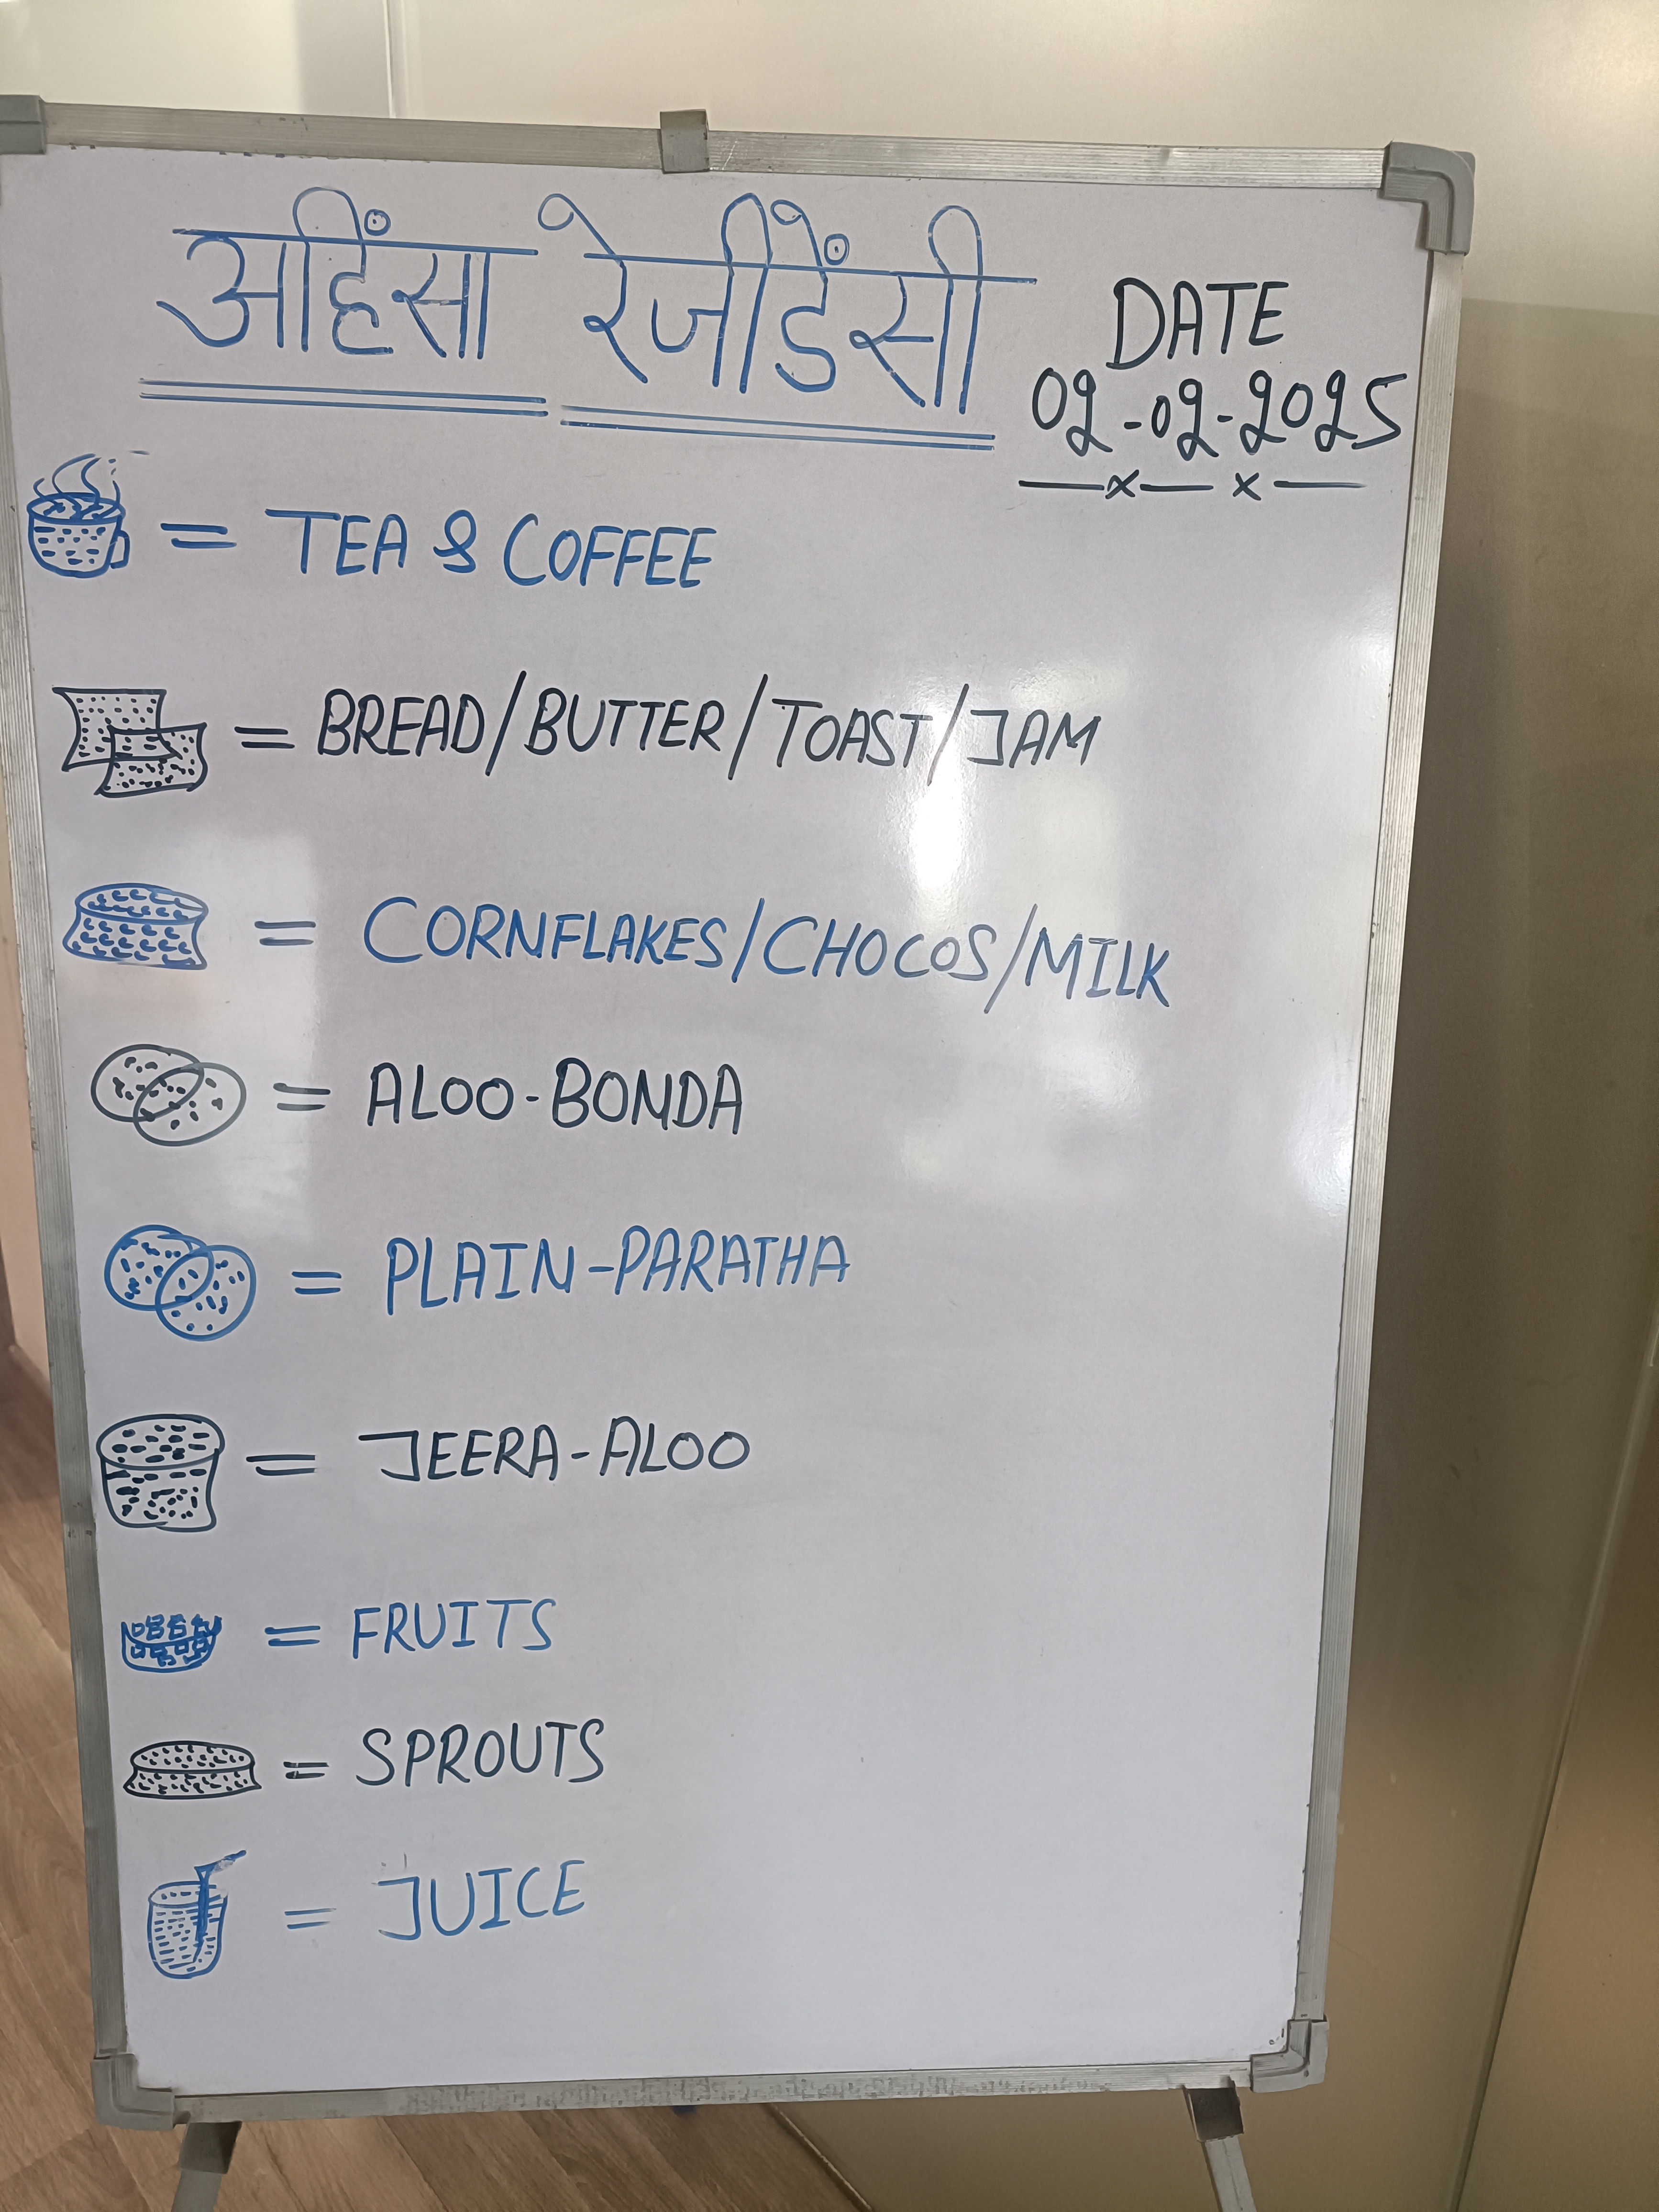 अहिंसा रेजीडेंसी
DATE
02-02-2025
= TEA & COFFEE
= BREAD/BUTTER/TOAST/JAM
= CORNFLAKES/CHOCOS/MILK
= ALOO-BONDA
= PLAIN-PARATHA
= JEERA-ALOO
= FRUITS
= SPROUTS
= JUICE